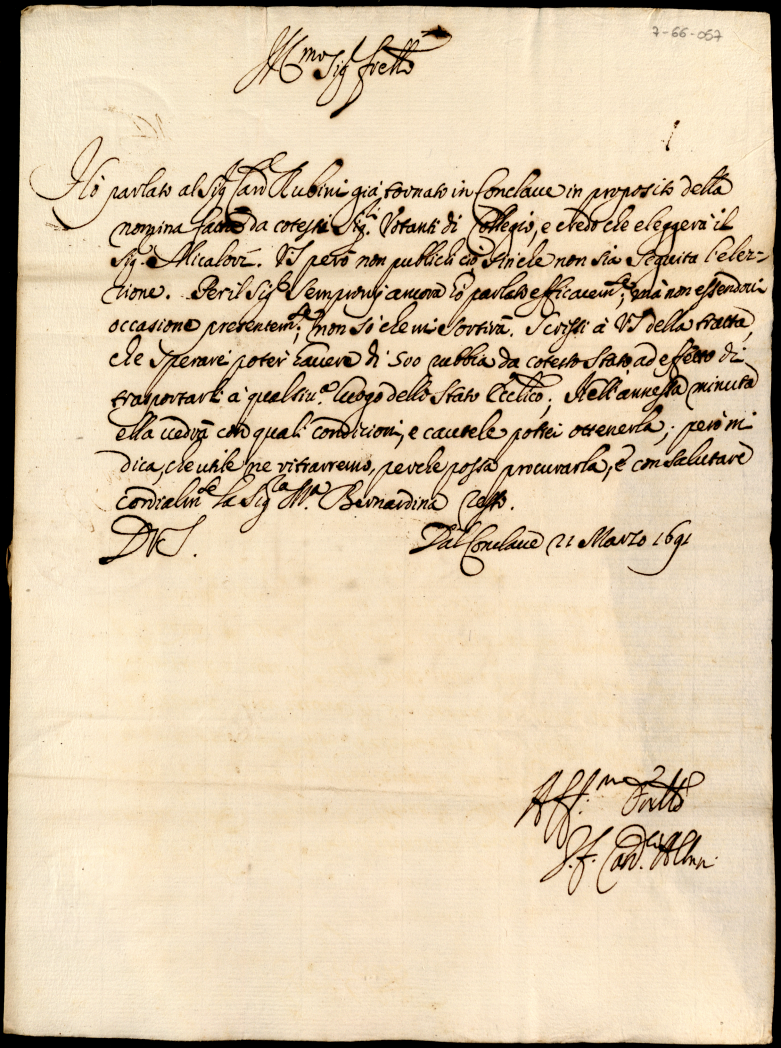 7-66-057
Ill.mo Sig.r Fr̃ello
Hò parlato al Sig.r Card.le Rubini già tornato in Conclave in proposito della
nomina fatta da cotesti Sig.ri Votanti di Collegio, e credo che eleggerà il
Sig.r Micalori. VS però non publichi ciò sinche non sia seguita l'elez-
zione. Per il Sig.r Sempronij ancora hò parlato efficacem.te; mà non essendovi
occasione presentem.te, non sò che mi sortirà. Scrissi à VS della tratta,
che sperarei poter havere di 500 rubbia da cotesto Stato ad effetto di
trasportarli à qualsiu.a luogo dello Stato Eccl.ico; Nell'annessa minuta
ella vedrà con quali condizioni, e cautele potrei ottenerla; però mi
dica, che utile ne ritrarremo, perche possa procurarla, e con salutare
cordialm.te la Sig.ra Bernardina resto.
D VS.
Dal Conclave 21 Marzo 1691
Aff.mo Fr̃ello
Card.le